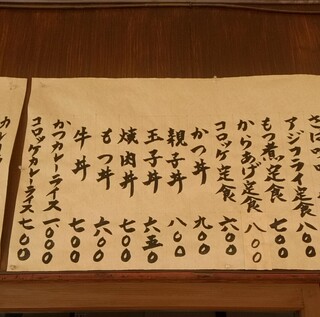 アジフライ定食 八〇〇
もつ煮定食 七〇〇
からあげ定食 八〇〇
コロッケ定食 六〇〇
かつ丼 九〇〇
親子丼 八〇〇
玉子丼 六五〇
焼肉丼 七〇〇
もつ丼 六〇〇
牛丼 七〇〇
かつカレーライス 一、〇〇〇
コロッケカレーライス 七〇〇